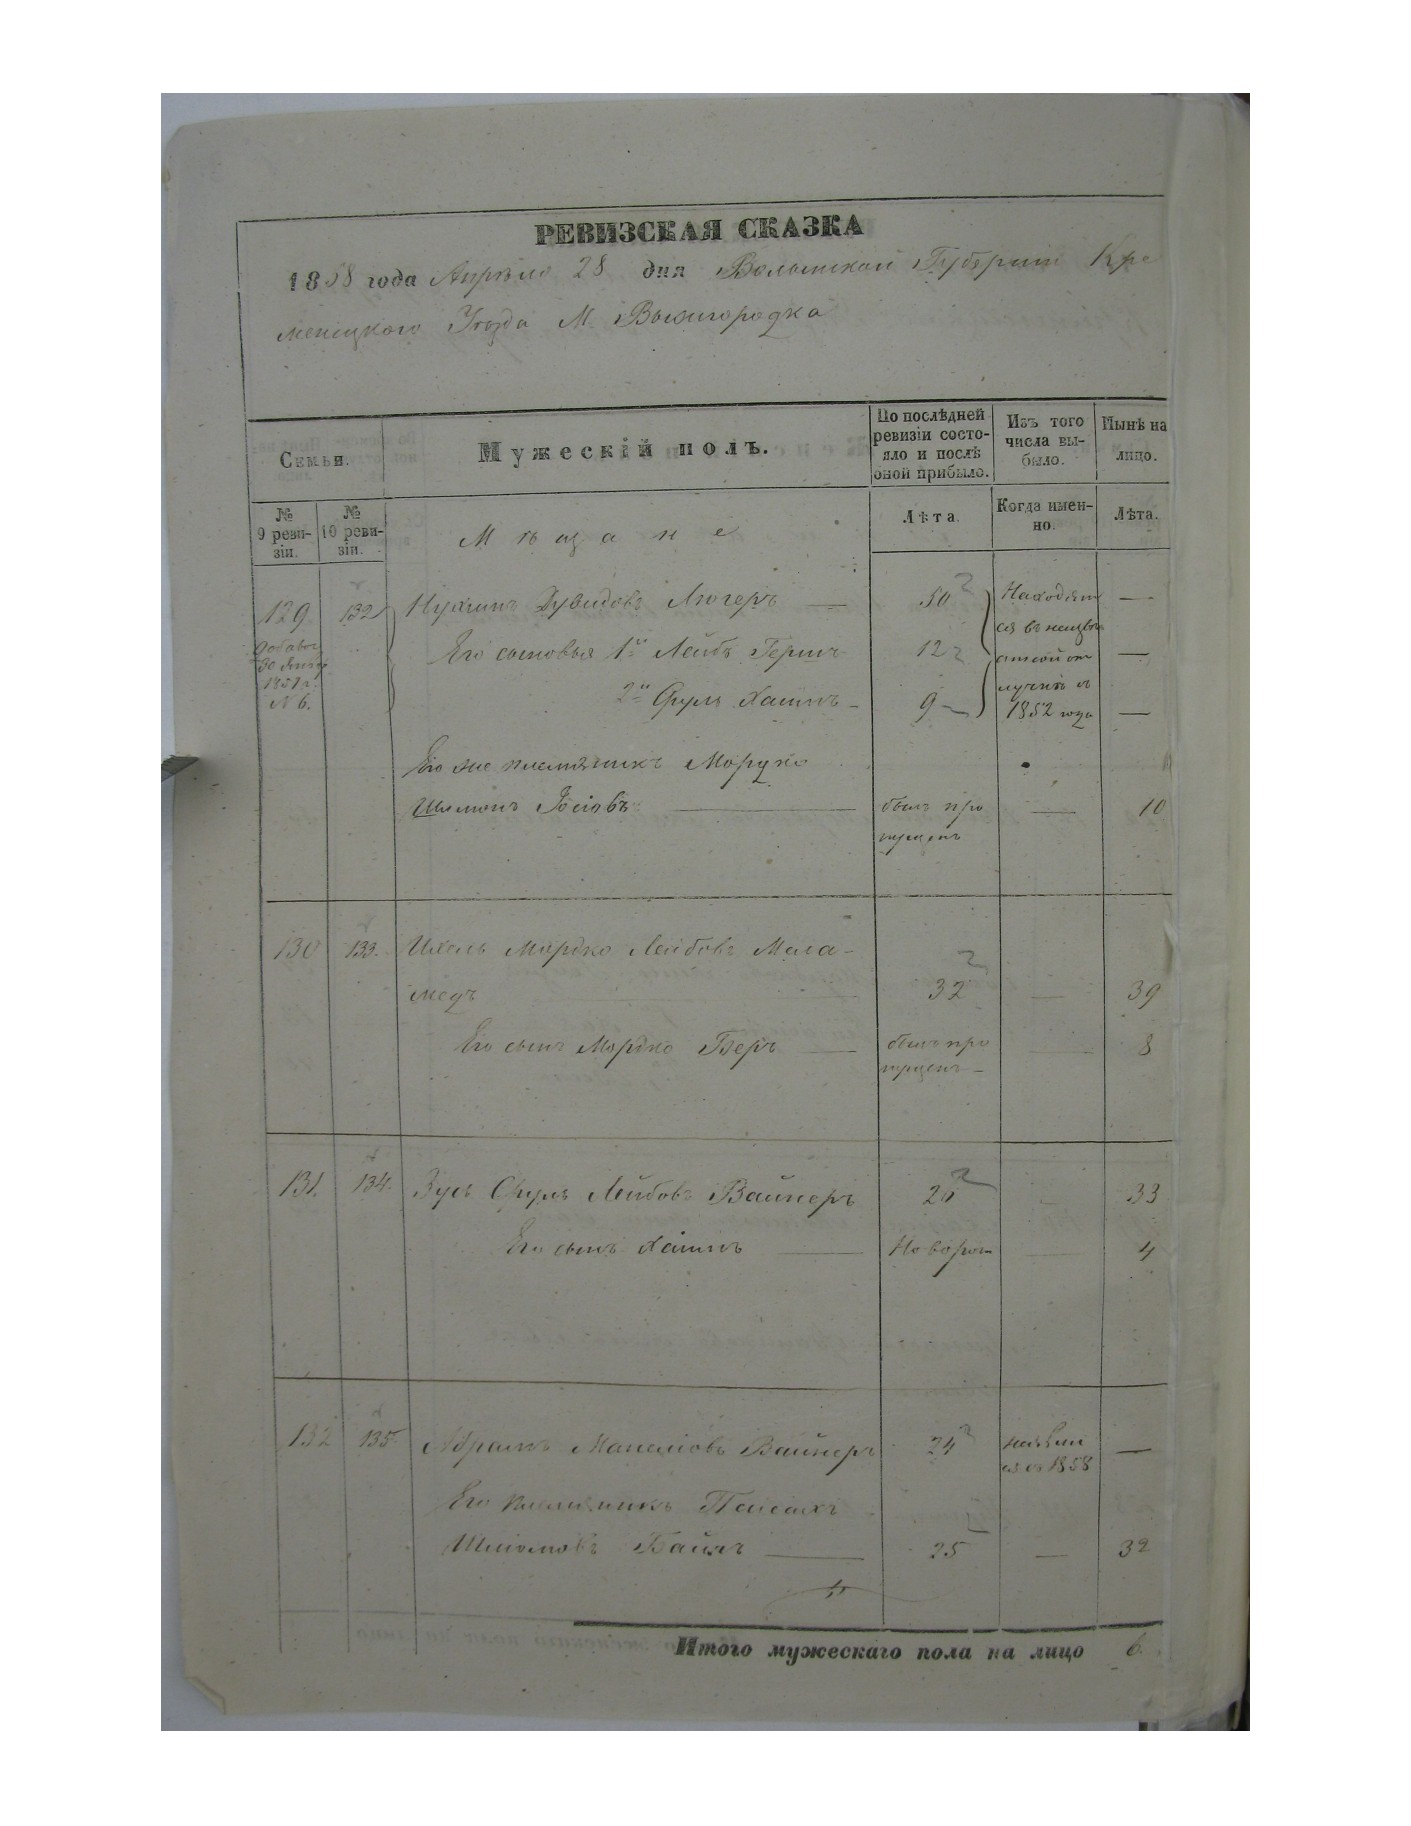 РЕВИЗСКАЯ СКАЗКА
1858 года Апреля 28 дня Волынской Губернии Кре
менецкого Уезда М. Вышгородка
Семьи.
Мужескій полъ.
По послѣдней ревизіи состо-
яло и послѣ
оной прибыло.
Изъ того
числа вы-
было.
Нынѣ на
лицо.
№
9 реви-
зіи.
№
10 реви-
зіи.
Мѣщане
Лѣта.
Когда имен-
но.
Лѣта.
129 132 Нухимъ Дувидовъ Люгеръ — 50 Находят —
ся въ неизвѣ
1851 г.
N 6.
Его сыновья 1й Лейбъ Гершъ 12 —
2й Сруль Хаимъ — 9 —
1852 года
Его же племянникъ Мордко
Шлиома Іосіовъ — былъ про — 10
пущенъ
130 133. Ихель Мордко Лейбовъ Мала-
медъ — 32 — 39
Его сынъ Мордко Беръ — былъ про — 8
пущенъ —
131. 134. Зусь Сруль Лейбовъ Вайнеръ 26 — 33
Его сынъ Хаимъ — Новорож — 4
132 135 Абрамъ Манелiовъ Вайнеръ 24 —
ся съ 1858
Его племянникъ Пейсахъ
Шліомовъ Байлъ — 25 — 32
Итого мужескаго пола на лицо 6.